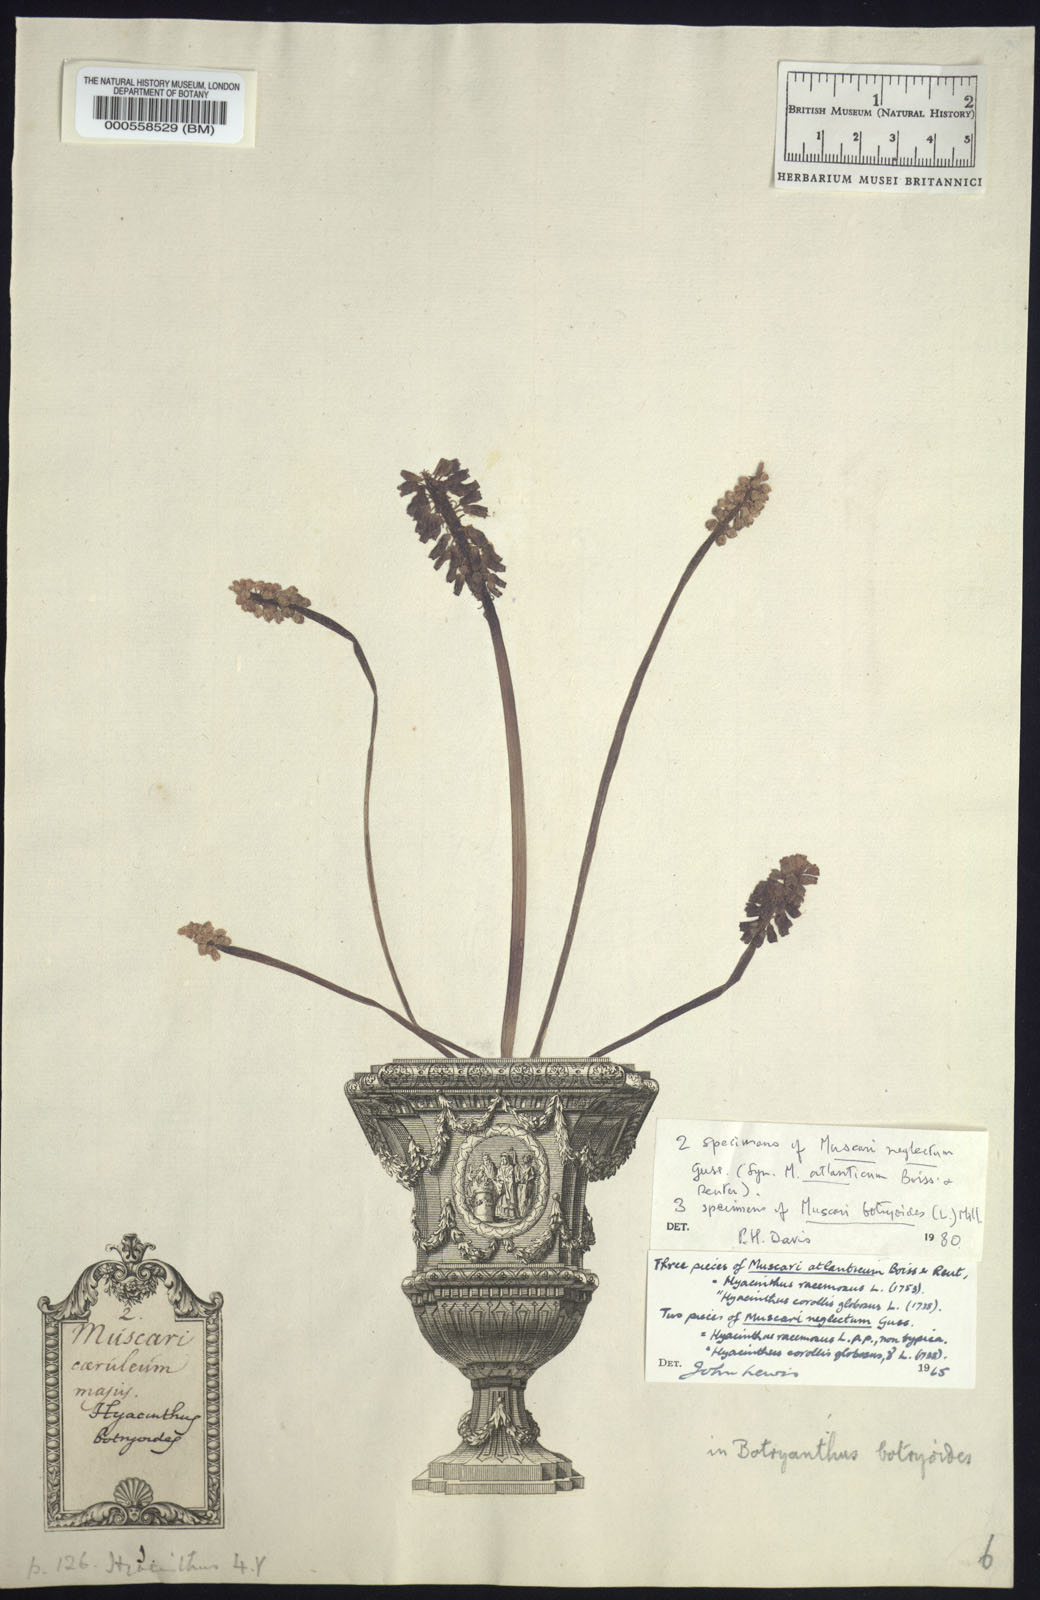 THE NATURAL HISTORY MUSEUM, LONDON
DEPARTMENT OF BOTANY
000558529 (BM)
1 2
BRITISH MUSEUM (NATURAL HISTORY)
1 2 3 4 5
HERBARIUM MUSEI BRITANNICI
2 specimens of Muscari neglectum
Guss. (Syn. M. atlanticum Boiss. &
Reuter).
3 specimens of Muscari botryoides (L.) Mill.
DET. P.H. Davis 1980
Three pieces of Muscari atlanticum Boiss & Reut,
= Hyacinthus racemosus L. (1753).
"Hyacinthus corollis globosus L. (1738).
Two pieces of Muscari neglectum Guss.
= Hyacinthus racemosus L. p.p., non typica.
"Hyacinthus corollis globosus, γ L. (1738).
DET. John Lewis 1965
2.
Muscari
cæruleum
majus.
Hyacinthus
botryoides
in Botryanthus botryoides
p. 126. Hyacinthus 4. γ
6